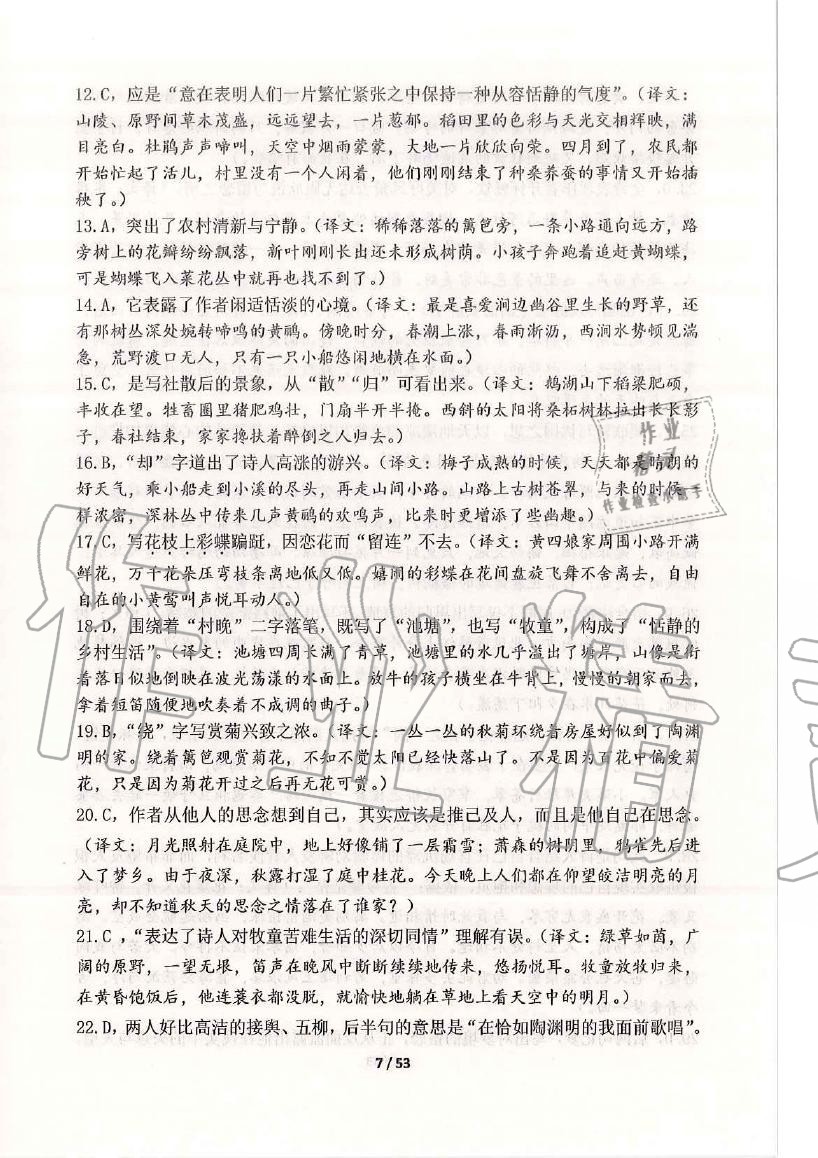 12.C，应是“意在表明人们一片繁忙紧张之中保持一种从容恬静的气度”。（译文：
山陵、原野间草木茂盛，远远望去，一片葱郁。稻田里的色彩与天光交相辉映，满
目亮白。杜鹃声声啼叫，天空中烟雨蒙蒙，大地一片欣欣向荣。四月到了，农民都
开始忙起了活儿，村里没有一个人闲着，他们刚刚结束了种桑养蚕的事情又开始插
秧了。）
13.A，突出了农村清新与宁静。（译文：稀稀落落的篱笆旁，一条小路通向远方，路
旁树上的花瓣纷纷飘落，新叶刚刚长出还未形成树荫。小孩子奔跑着追赶黄蝴蝶，
可是蝴蝶飞入菜花丛中就再也找不到了。）
14.A，它表露了作者闲适恬淡的心境。（译文：最是喜爱涧边幽谷里生长的野草，还
有那树丛深处婉转啼鸣的黄鹂。傍晚时分，春潮上涨，春雨淅沥，西涧水势顿见湍
急，荒野渡口无人，只有一只小船悠闲地横在水面。）
15.C，是写社散后的景象，从“散”“归”可看出来。（译文：鹅湖山下稻粱肥硕，
丰收在望。牲畜圈里猪肥鸡壮，门扇半开半掩。西斜的太阳将桑柘树林拉出长长影
子，春社结束，家家搀扶着醉倒之人归去。）
16.B，“却”字道出了诗人高涨的游兴。（译文：梅子成熟的时候，天天都是晴朗的
好天气，乘小船走到小溪的尽头，再走山间小路。山路上古树苍翠，与来的时候一
样浓密，深林丛中传来几声黄鹂的欢鸣声，比来时更增添了些幽趣。）
17.C，写花枝上彩蝶蹁跹，因恋花而“留连”不去。（译文：黄四娘家周围小路开满
鲜花，万千花朵压弯枝条离地低又低。嬉闹的彩蝶在花间盘旋飞舞不舍离去，自由
自在的小黄莺叫声悦耳动人。）
18.D，围绕着“村晚”二字落笔，既写了“池塘”，也写“牧童”，构成了“恬静的
乡村生活”。（译文：池塘四周长满了青草，池塘里的水几乎溢出了塘岸，山像是衔
着落日似地倒映在波光荡漾的水面上。放牛的孩子横坐在牛背上，慢慢的朝家而去，
拿着短笛随便地吹奏着不成调的曲子。）
19.B，“绕”字写赏菊兴致之浓。（译文：一丛一丛的秋菊环绕着房屋好似到了陶渊
明的家。绕着篱笆观赏菊花，不知不觉太阳已经快落山了。不是因为百花中偏爱菊
花，只是因为菊花开过之后再无花可赏。）
20.C，作者从他人的思念想到自己，其实应该是推己及人，而且是他自己在思念。
（译文：月光照射在庭院中，地上好像铺了一层霜雪；萧森的树阴里，鸦雀先后进
入了梦乡。由于夜深，秋露打湿了庭中桂花。今天晚上人们都在仰望皎洁明亮的月
亮，却不知道秋天的思念之情落在了谁家？）
21.C，“表达了诗人对牧童苦难生活的深切同情”理解有误。（译文：绿草如茵，广
阔的原野，一望无垠，笛声在晚风中断断续续地传来，悠扬悦耳。牧童放牧归来，
在黄昏饱饭后，他连蓑衣都没脱，就愉快地躺在草地上看天空中的明月。）
22.D，两人好比高洁的接舆、五柳，后半句的意思是“在恰如陶渊明的我面前歌唱”。
7 / 53
作业
精灵
作业检查小助手
作业精灵